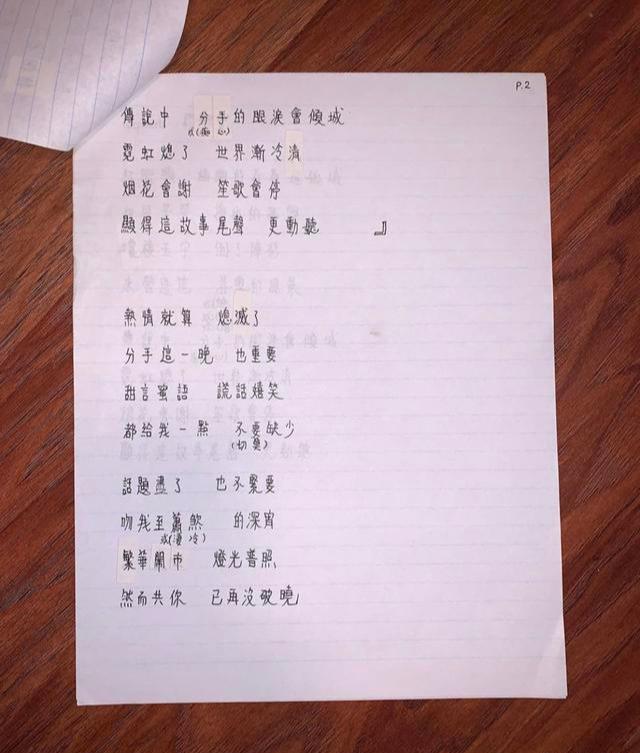 P.2
傳說中 分手的眼淚會傾城
或(痴心)
霓虹熄了 世界漸冷清
烟花會謝 笙歌會停
顯得這故事尾聲 更動聽 』
熱情就算 熄滅了
分手這一晚 也重要
甜言蜜語 謊話嬉笑
都給我一點 不要缺少
(切莫)
話題盡了 也不緊要
吻我至蕭煞 的深宵
或(凄冷)
繁華鬧市 燈光普照
然而共你 已再沒破曉